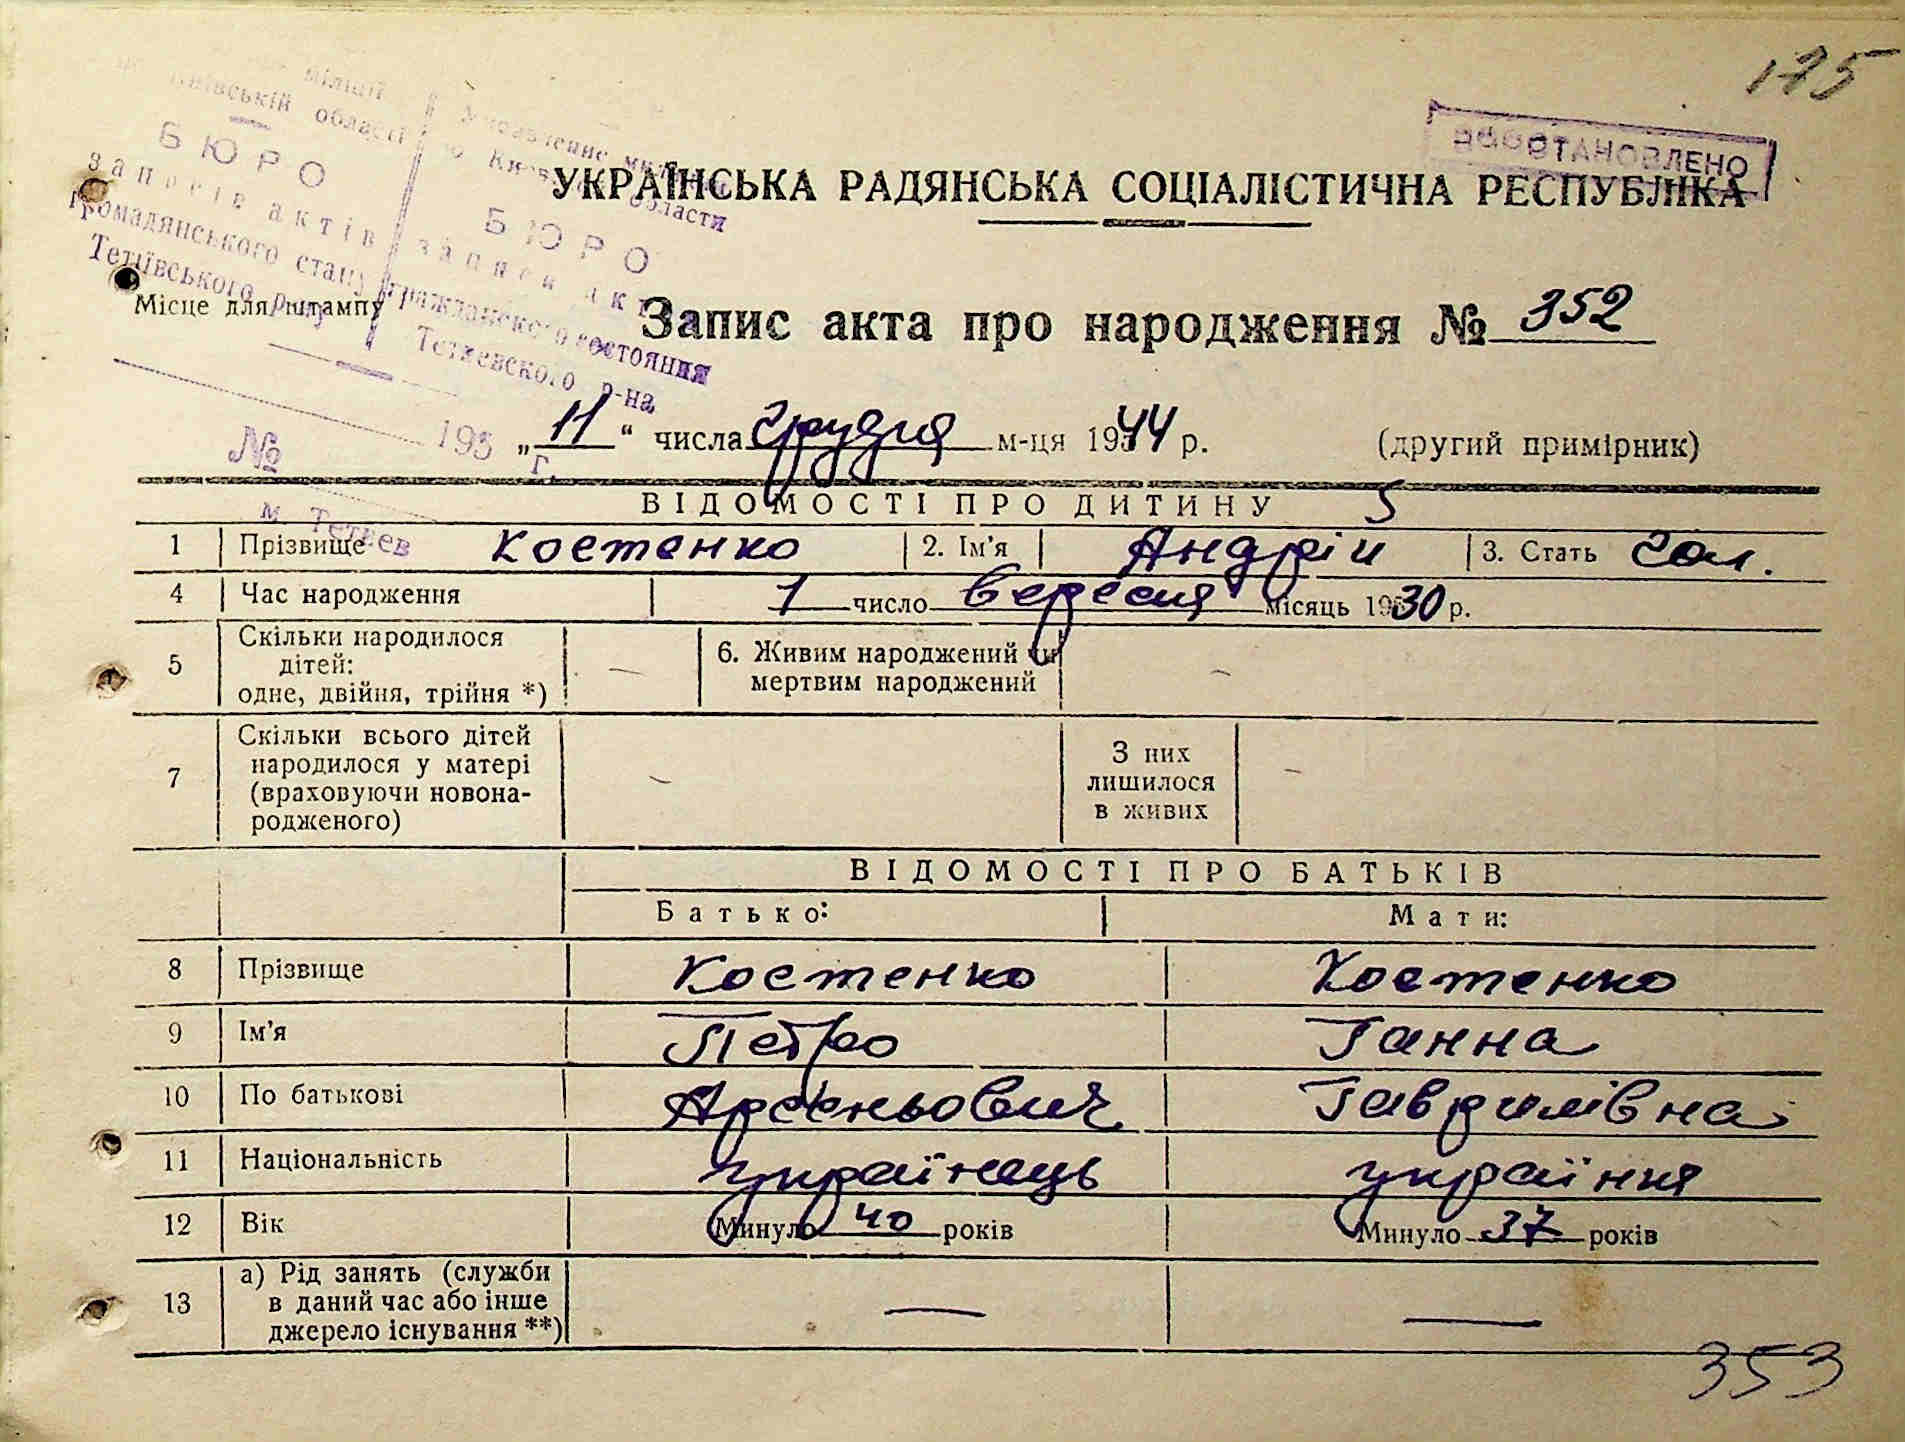 175
міліції
Київській області
Управление милиции
по Киевской области
ВОССТАНОВЛЕНО
БЮРО
записів актів
громадянського стану
Тетіївського р-ну
БЮРО
записи акт
гражданского состояния
Тетиевского р-на
УКРАЇНСЬКА РАДЯНСЬКА СОЦІАЛІСТИЧНА РЕСПУБЛІКА
Місце для штампу
Запис акта про народження № 352
№ 195 г.
м. Тетиев
„11“ числа грудня м-ця 1944 р. (другий примірник)
ВІДОМОСТІ ПРО ДИТИНУ
1 Прізвище Костенко 2. Ім'я Андрій 3. Стать чол.
4 Час народження 1 число вересня місяць 1930 р.
5 Скільки народилося
дітей:
одне, двійня, трійня *) — 6. Живим народжений чи
мертвим народжений —
7 Скільки всього дітей
народилося у матері
(враховуючи новона-
родженого) — З них
лишилося
в живих —
ВІДОМОСТІ ПРО БАТЬКІВ
Батько: Мати:
8 Прізвище Костенко Костенко
9 Ім'я Петро Ганна
10 По батькові Арсеньович Гаврилівна
11 Національність українець украінка
12 Вік Минуло 40 років Минуло 37 років
13 а) Рід занять (служби
в даний час або інше
джерело існування **) — —
353